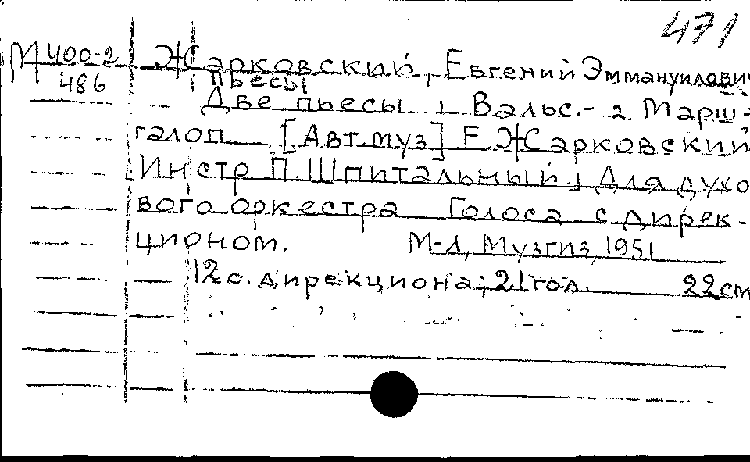 471
М 400-2
486
Жарковский, Евгений Эммануилович
Пьесы
Две пьесы 1 Вальс.- 2 Марш-
галоп [Авт. муз] Е Жарковский
Инстр П. Шпитальный, Для духо
вого оркестра Голоса с дирек-
ционом. М-Л, Музгиз, 1951
12 с. дирекциона; 21 гол. 22 см